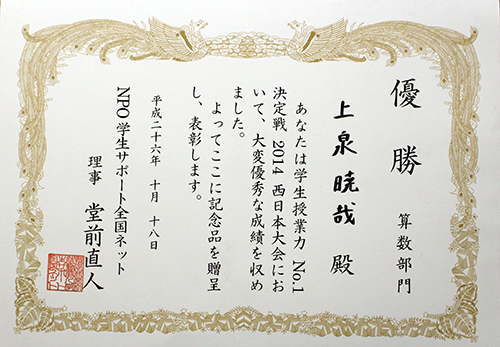 優勝 算数部門
上泉暁哉 殿
あなたは学生授業力 No.1
決定戦 2014 西日本大会にお
いて、大変優秀な成績を収め
ました。
よってここに記念品を贈呈
し、表彰します。
平成二十六年 十月 十八日
NPO 学生サポート全国ネット
理事 堂前直人